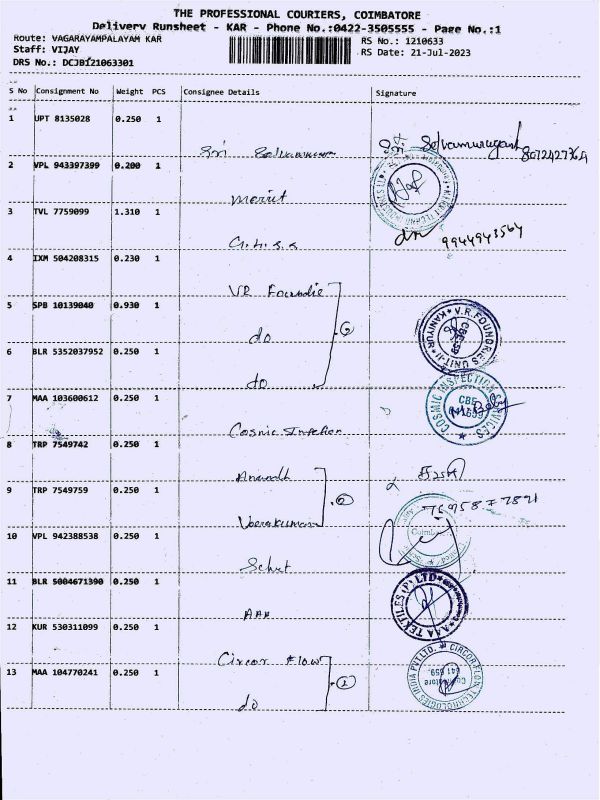 THE PROFESSIONAL COURIERS, COIMBATORE
Delivery Runsheet - KAR - Phone No.:0422-3505555 - Page No.:1
Route: VAGARAYAMPALAYAM KAR
RS No.: 1210633
Staff: VIJAY
RS Date: 21-Jul-2023
DRS No.: DCJB121063301
S No Consignment No Weight PCS Consignee Details Signature
1 UPT 8135028 0.250 1
Sri Selvamurugan
2 VPL 943397399 0.200 1
3 TVL 7759099 1.310 1
9944943564
4 IXM 504208315 0.230 1
VR Foundie
5 SPB 10139040 0.930 1
do
V.R.FOUNDRIES UNIT-II KANIYUR
6 BLR 5352037952 0.250 1
do
7 MAA 103600612 0.250 1
COSMIC INSPECTION SERVICES
Cosmic
8 TRP 7549742 0.250 1
Anandh
9 TRP 7549759 0.250 1
Veerakumar
10 VPL 942388538 0.250 1
11 BLR 5004671390 0.250 1
AAA
AAA TEXTILES (P) LTD
12 KUR 530311099 0.250 1
Circor Flow
13 MAA 104770241 0.250 1
do
CIRCOR FLOW TECHNOLOGIES INDIA PVT.LTD.
Coimbatore
641 659.